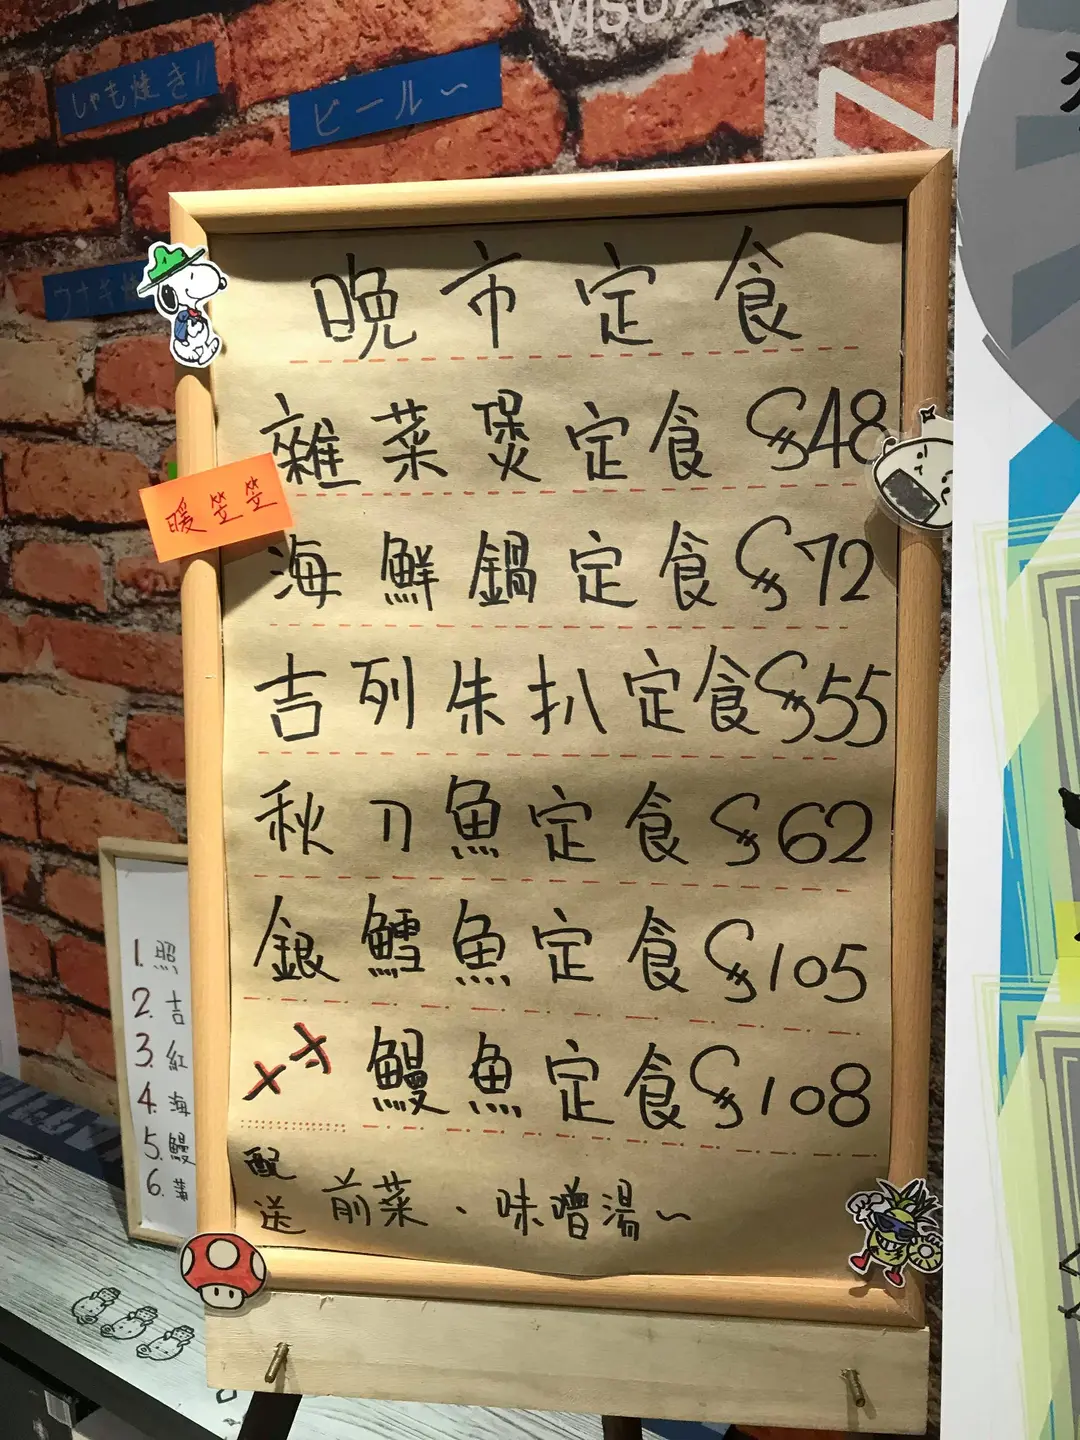 VISUAL
ZI
しゃも焼き!!
ビール～
ウナギ焼
晚市定食
雜菜煲定食 $48
暖笠笠
海鮮鍋定食 $72
吉列朱扒定食 $55
秋刀魚定食 $62
銀鱈魚定食 $105
鰻魚定食 $108
配送 前菜、味噌湯~
1. 照
2. 吉
3. 紅
4. 海
5. 鰻
6.